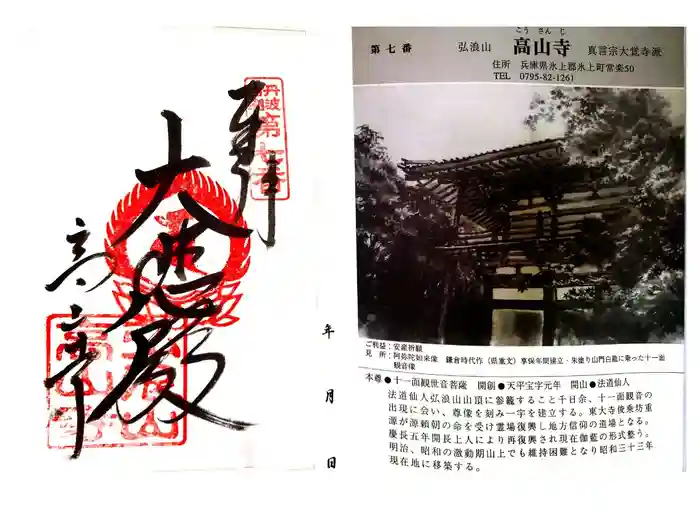 奉拝
丹波
第七番
大悲殿
高山寺
年
月
日
こうさんじ
第七番 弘浪山 高山寺 真言宗大覚寺派
住所 兵庫県氷上郡氷上町常楽50
TEL 0795-82-1261
ご利益:安産祈願
見所:阿弥陀如来像 鎌倉時代作(県重文)享保年間建立・朱塗り山門白亀に乗った十一面
観音像
本尊●十一面観世音菩薩 開創●天平宝字元年 開山●法道仙人
法道仙人弘浪山山頂に参籠すること千日余、十一面観音の
出現に会い、尊像を刻み一宇を建立する。東大寺俊乗坊重
源が源頼朝の命を受け霊場復興し地方信仰の道場となる。
慶長五年開長上人により再復興され現在伽藍の形式整う。
明治、昭和の激動期山上でも維持困難となり昭和三十三年
現在地に移築する。